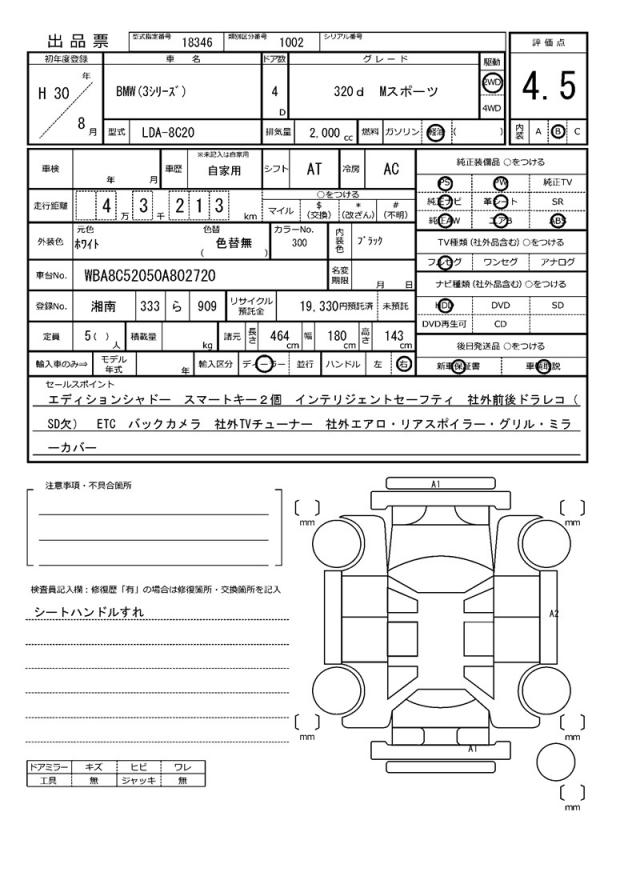 出品票 型式指定番号 18346 類別区分番号 1002 シリアル番号
初年度登録 車名 ドア数 グレード 駆動 評価点
H 30 年 8 月 BMW(3ｼﾘｰｽﾞ) 4 D 320d Mスポーツ 2WD 4WD 4.5
型式 LDA-8C20 排気量 2,000 cc 燃料 ガソリン 軽油 ( ) 内装 A B C
車検 年 月 車歴 ※未記入は自家用 自家用 シフト AT 冷房 AC
走行距離 4 万 3 千 2 1 3 km ○をつける マイル $ (交換) * (改ざん) # (不明)
外装色 元色 ホワイト 色替 色替無 ( ) カラーNo. 300 内装色 ﾌﾞﾗｯｸ
車台No. WBA8C52050A802720 名変期限 月 日
登録No. 湘南 333 ら 909 リサイクル預託金 19,330円預託済 未預託
定員 5( ) 人 積載量 kg 諸元 長さ 464 cm 幅 180 cm 高さ 143 cm
輸入車のみ⇒ モデル年式 年 輸入区分 ディーラー 並行 ハンドル 左 右
純正装備品 ○をつける
PS PW 純正TV
純正ナビ 革シート SR
純正AW エアB ABS
TV種類(社外品含む) ○をつける
フルセグ ワンセグ アナログ
ナビ種類(社外品含む) ○をつける
HDD DVD SD
DVD再生可 CD
後日発送品 ○をつける
新車保証書 車輌取説
セールスポイント
エディションシャドー スマートキー２個 インテリジェントセーフティ 社外前後ドラレコ（
SD欠） ETC バックカメラ 社外TVチューナー 社外エアロ・リアスポイラー・グリル・ミラ
ーカバー
注意事項・不具合箇所
検査員記入欄：修復歴「有」の場合は修復箇所・交換箇所を記入
シートハンドルすれ
A1
mm
mm
A2
mm
mm
A1
mm
ドアミラー キズ ヒビ ワレ
工具 無 ジャッキ 無